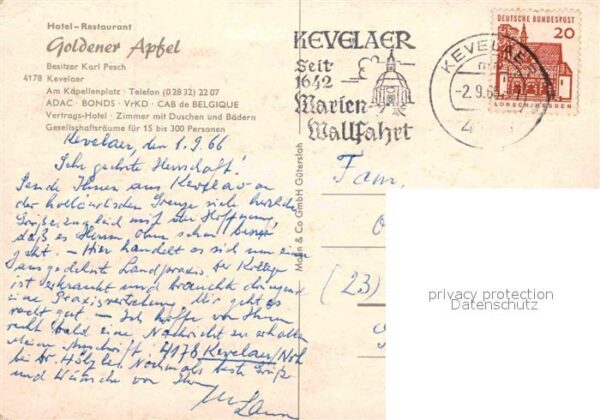 Hotel-Restaurant
Goldener Apfel
Besitzer Karl Pesch
4178 Kevelaer
Am Kapellenplatz · Telefon (02832) 2207
ADAC · BONDS · VrKD · CAB de BELGIQUE
Vertrags-Hotel · Zimmer mit Duschen und Bädern
Gesellschaftsräume für 15 bis 300 Personen
KEVELAER
Seit
1642
Marien
Wallfahrt
KEVELAER
-2.9.66
DEUTSCHE BUNDESPOST
20
LORSCH/HESSEN
Mohn & Co GmbH Gütersloh
Kevelaer, den 1.9.66
Sehr geehrte Herrschaft!
Sende Ihnen aus Kevelaer an
der holländischen Grenze viele herzliche
Grüße, zugleich mit der Hoffnung,
daß es Ihnen, schon besser
geht. – Hier handelt es sich um eine
ausgedehnte Landpraxis. Der Kollege
ist verkracht und brauchte dringend
eine Praxisvertretung. Mir geht es
recht gut – Ich hoffe von Ihnen
recht bald eine Nachricht zu erhalten
Meine Anschrift: 4178 Kevelaer/Ndrh
bei Dr. Hölzle. Nochmals beste Grüße
und Wünsche von Ihrem
Fam.
(23)
privacy protection
Datenschutz